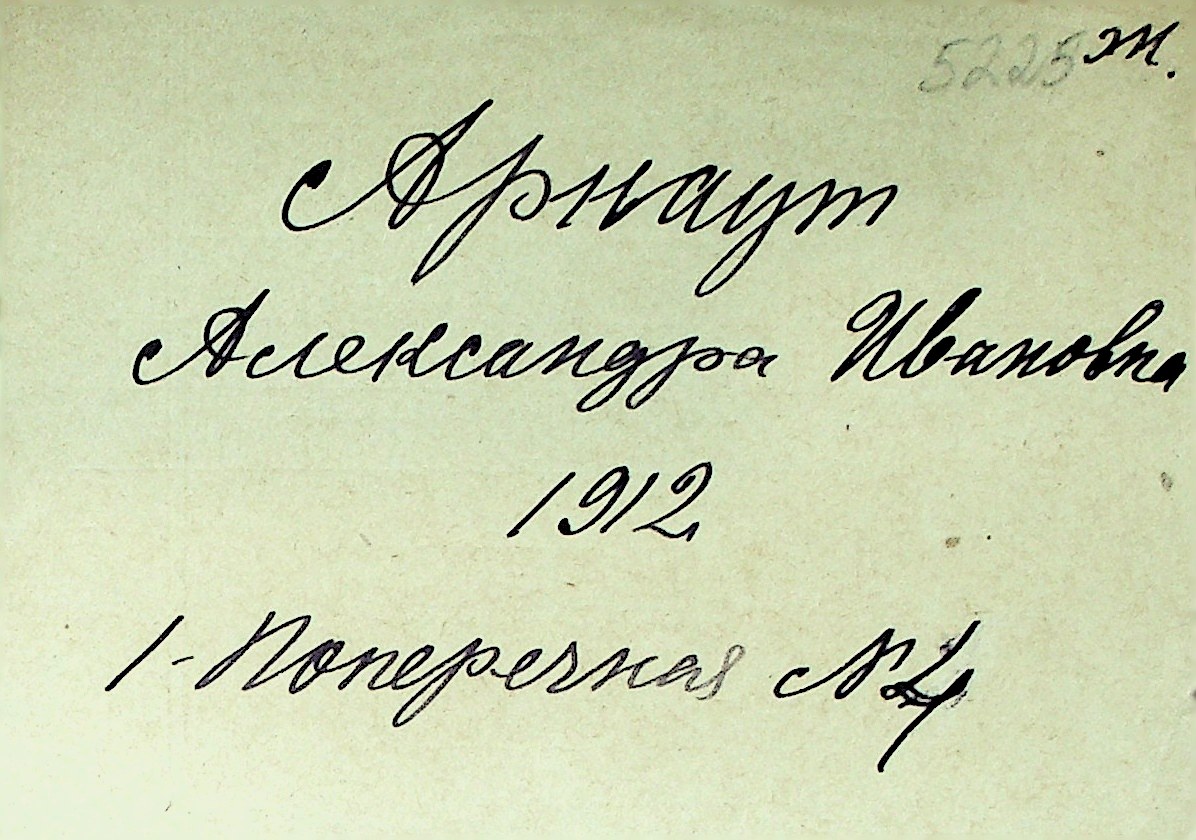 5225 ж.
Арнаут
Александра Ивановна
1912
1-Поперечная №4